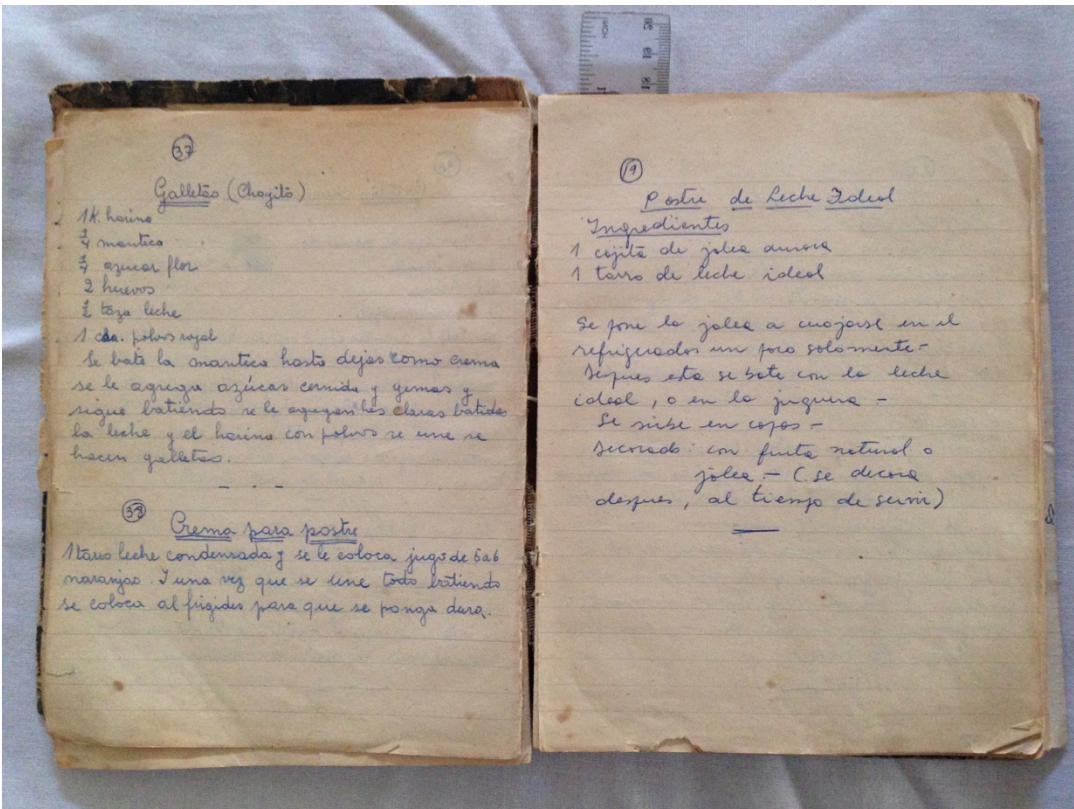 37
Galletas (Choyito)
1 K. harina
manteca
azucar flor
2 huevos
1/2 taza leche
1 cda. polvos royal
Se bate la manteca hasta dejar como crema
se le agrega azúcar cernida y yemas y
sigue batiendo se le agregan las claras batidas
la leche y el harina con polvos se une se
hacen galletas.
38
Crema para postre
1 tarro leche condensada y se le coloca jugo de 5 a 6
naranjas. Y una vez que se une todo batiendo
se coloca al frigider para que se ponga dura.
19
Postre de Leche Ideal
Ingredientes
1 cajita de jalea aurora
1 tarro de leche ideal
Se pone la jalea a cuajarse en el
refrigerador un poco solamente -
Despues esta se bate con la leche
ideal, o en la juguera -
Se sirbe en copas -
Decorado: con fruta natural o
jalea. - (Se decora
despues, al tiempo de servir)
INCH